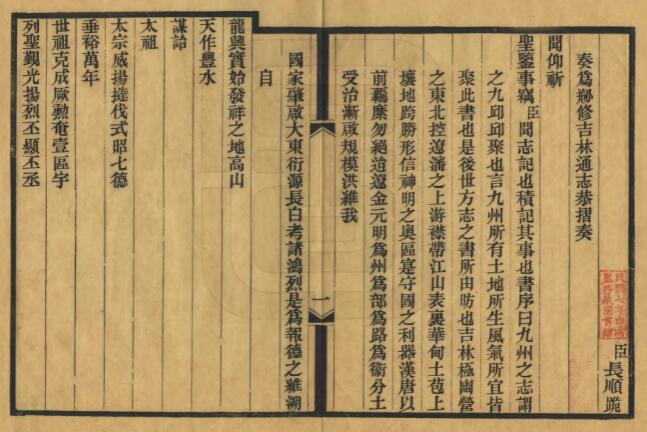 臣長順跪
奏爲刱修吉林通志恭摺奏
聞仰祈
聖鑒事竊臣聞志記也積記其事也書序曰九州之志謂
之九邱邱聚也言九州所有土地所生風氣所宜皆
聚此書也是後世方志之書所由昉也吉林極幽營
之東北控遼瀋之上游襟帶江山表裏華甸土苞上
壤地跨勝形信神明之奧區寔守國之利器漢唐以
前羈縻勿絕迨遼金元明爲州爲部爲路爲衞分土
受治漸啟規模洪維我
國家肇啟大東衍源長白考諸鴻烈是爲報德之維溯
自
龍興實始發祥之地高山
天作豐水
謀詒
太祖
太宗威揚撻伐式昭七德
垂裕萬年
世祖克成厥勳奄壹區宇
列聖覲光揚烈丕顯丕承
一